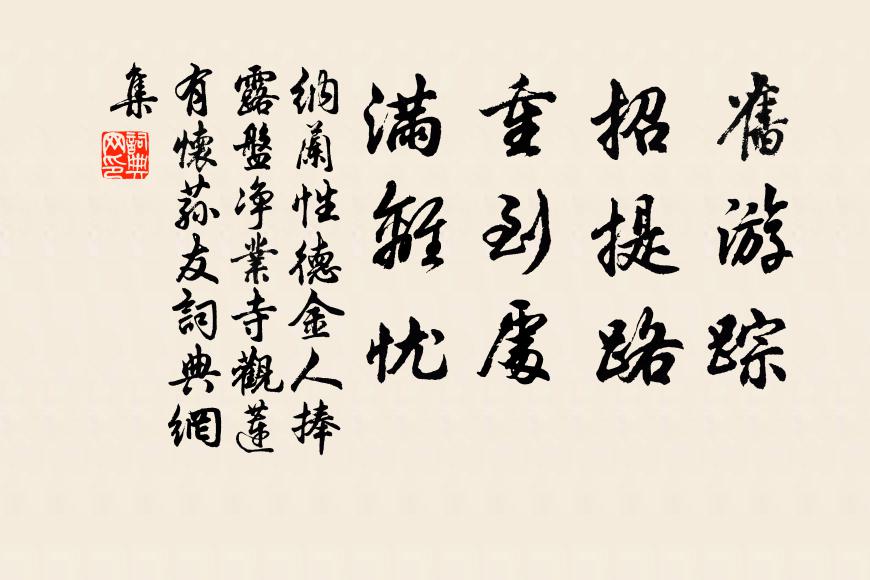 舊游踪
招提路
重到處
滿離忧
納蘭性德金人捧
露盤净業寺觀蓮
有懷蓀友詞典網
集
詞典
网印